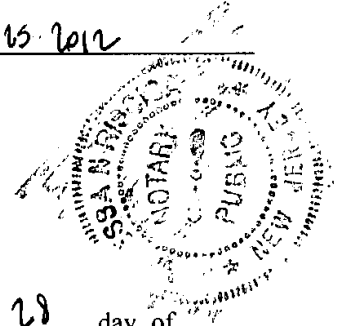 25. 2012
NOTARY
PUBLIC
NEW JERSEY
28 day of